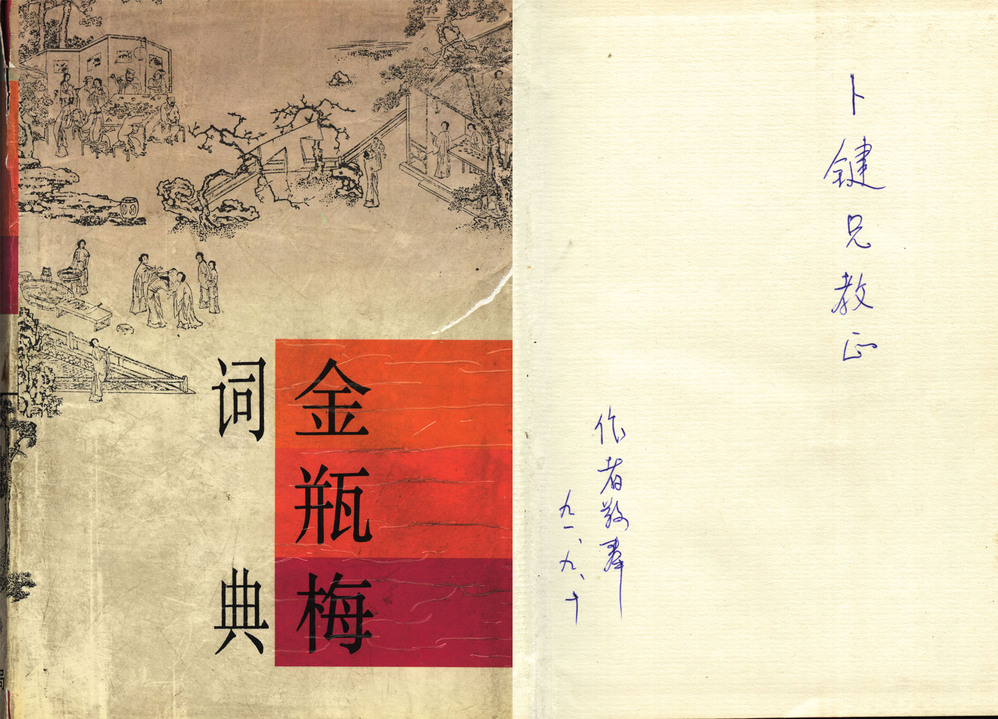 金瓶梅
词典
卜键兄教正
作者敬奉
九一、九、十